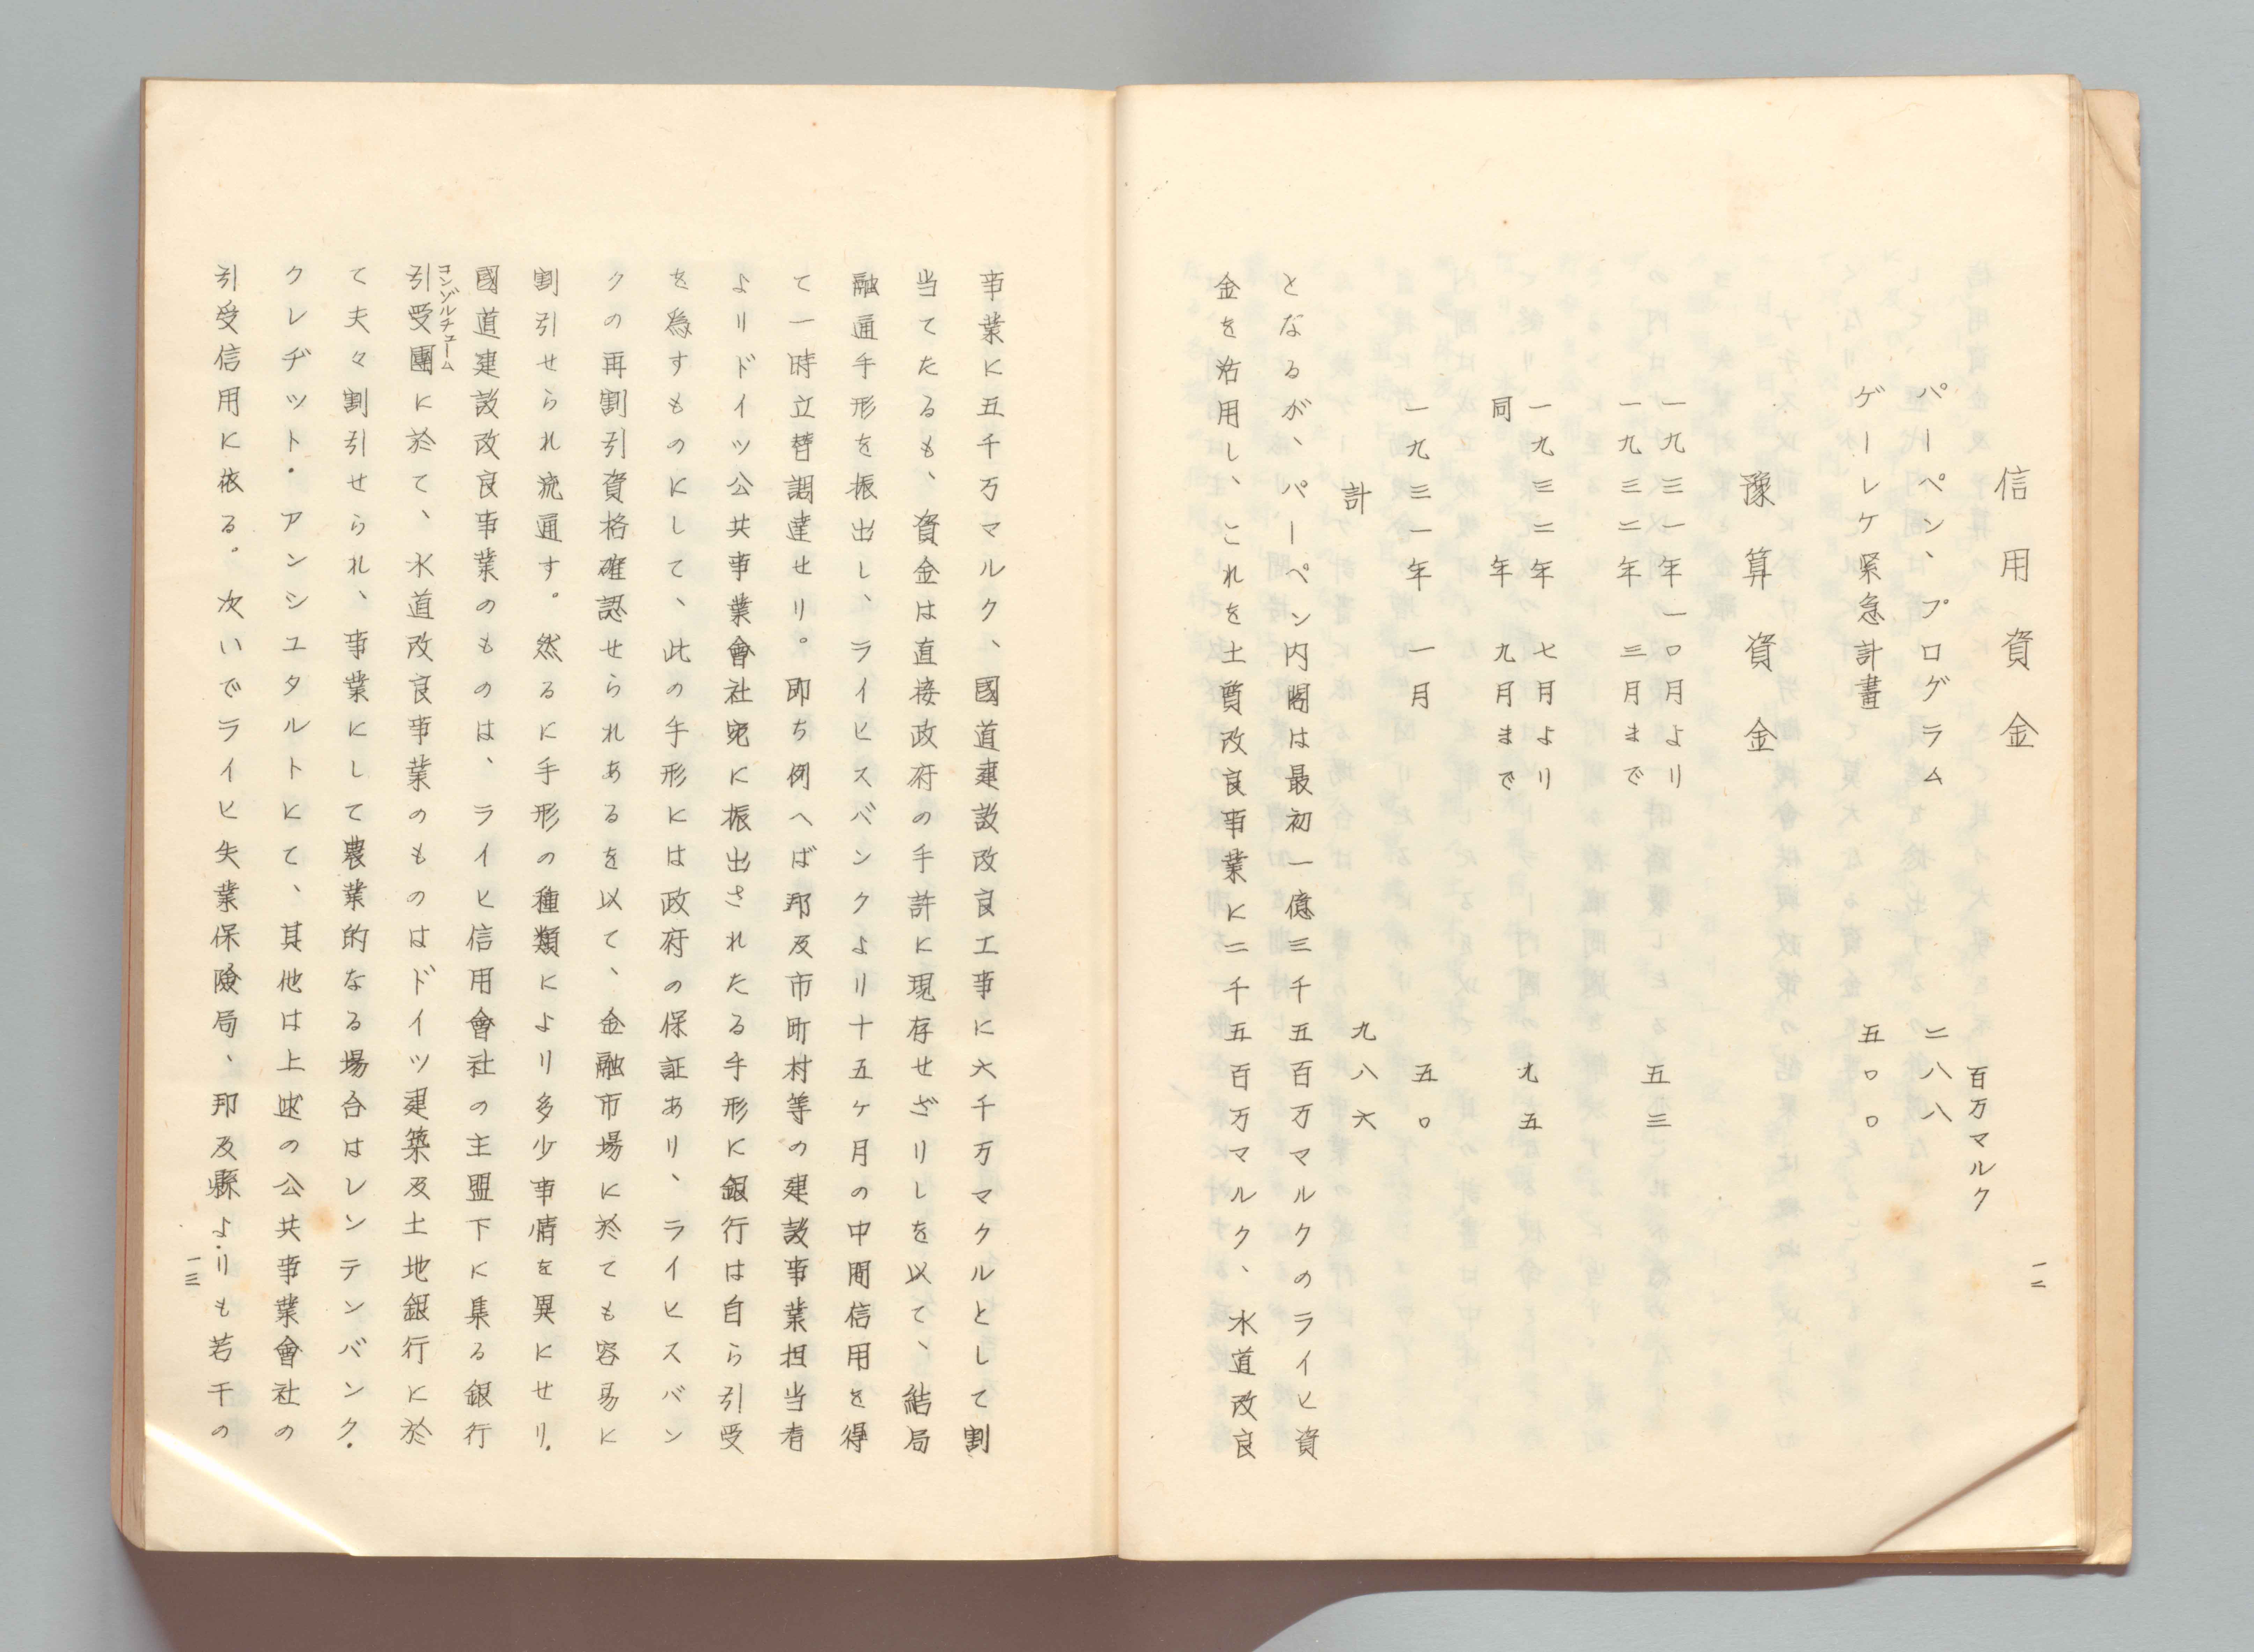 信用資金
百万マルク
パーペン、プログラム　二八八
ゲーレケ緊急計畫　五〇〇
豫算資金
一九三一年一〇月より
一九三二年　三月まで　五三
一九三二年　七月より
同　年　九月まで　九五
一九三一年　一月　五〇
計　九八六
となるが、パーペン内閣は最初一億三千五百万マルクのライヒ資
金を活用し、これを土質改良事業に二千五百万マルク、水道改良
一二
事業に五千万マルク、國道建設改良工事に六千万マルクとして割
当てたるも、資金は直接政府の手許に現存せざりしを以て、結局
融通手形を振出し、ライヒスバンクより十五ヶ月の中間信用を得
て一時立替調達せり。即ち例へば邦及市町村等の建設事業担当者
よりドイツ公共事業會社宛に振出されたる手形に銀行は自ら引受
を為すものにして、此の手形には政府の保証あり、ライヒスバン
クの再割引資格確認せられあるを以て、金融市場に於ても容易に
割引せられ流通す。然るに手形の種類により多少事情を異にせり.
國道建設改良事業のものは、ライヒ信用會社の主盟下に集る銀行
コンゾルチューム
引受團に於て、水道改良事業のものはドイツ建築及土地銀行に於
て夫々割引せられ、事業にして農業的なる場合はレンテンバンク.
クレヂット・アンシユタルトにて、其他は上述の公共事業會社の
引受信用に依る。次いでライヒ失業保険局、邦及縣よりも若干の
一三